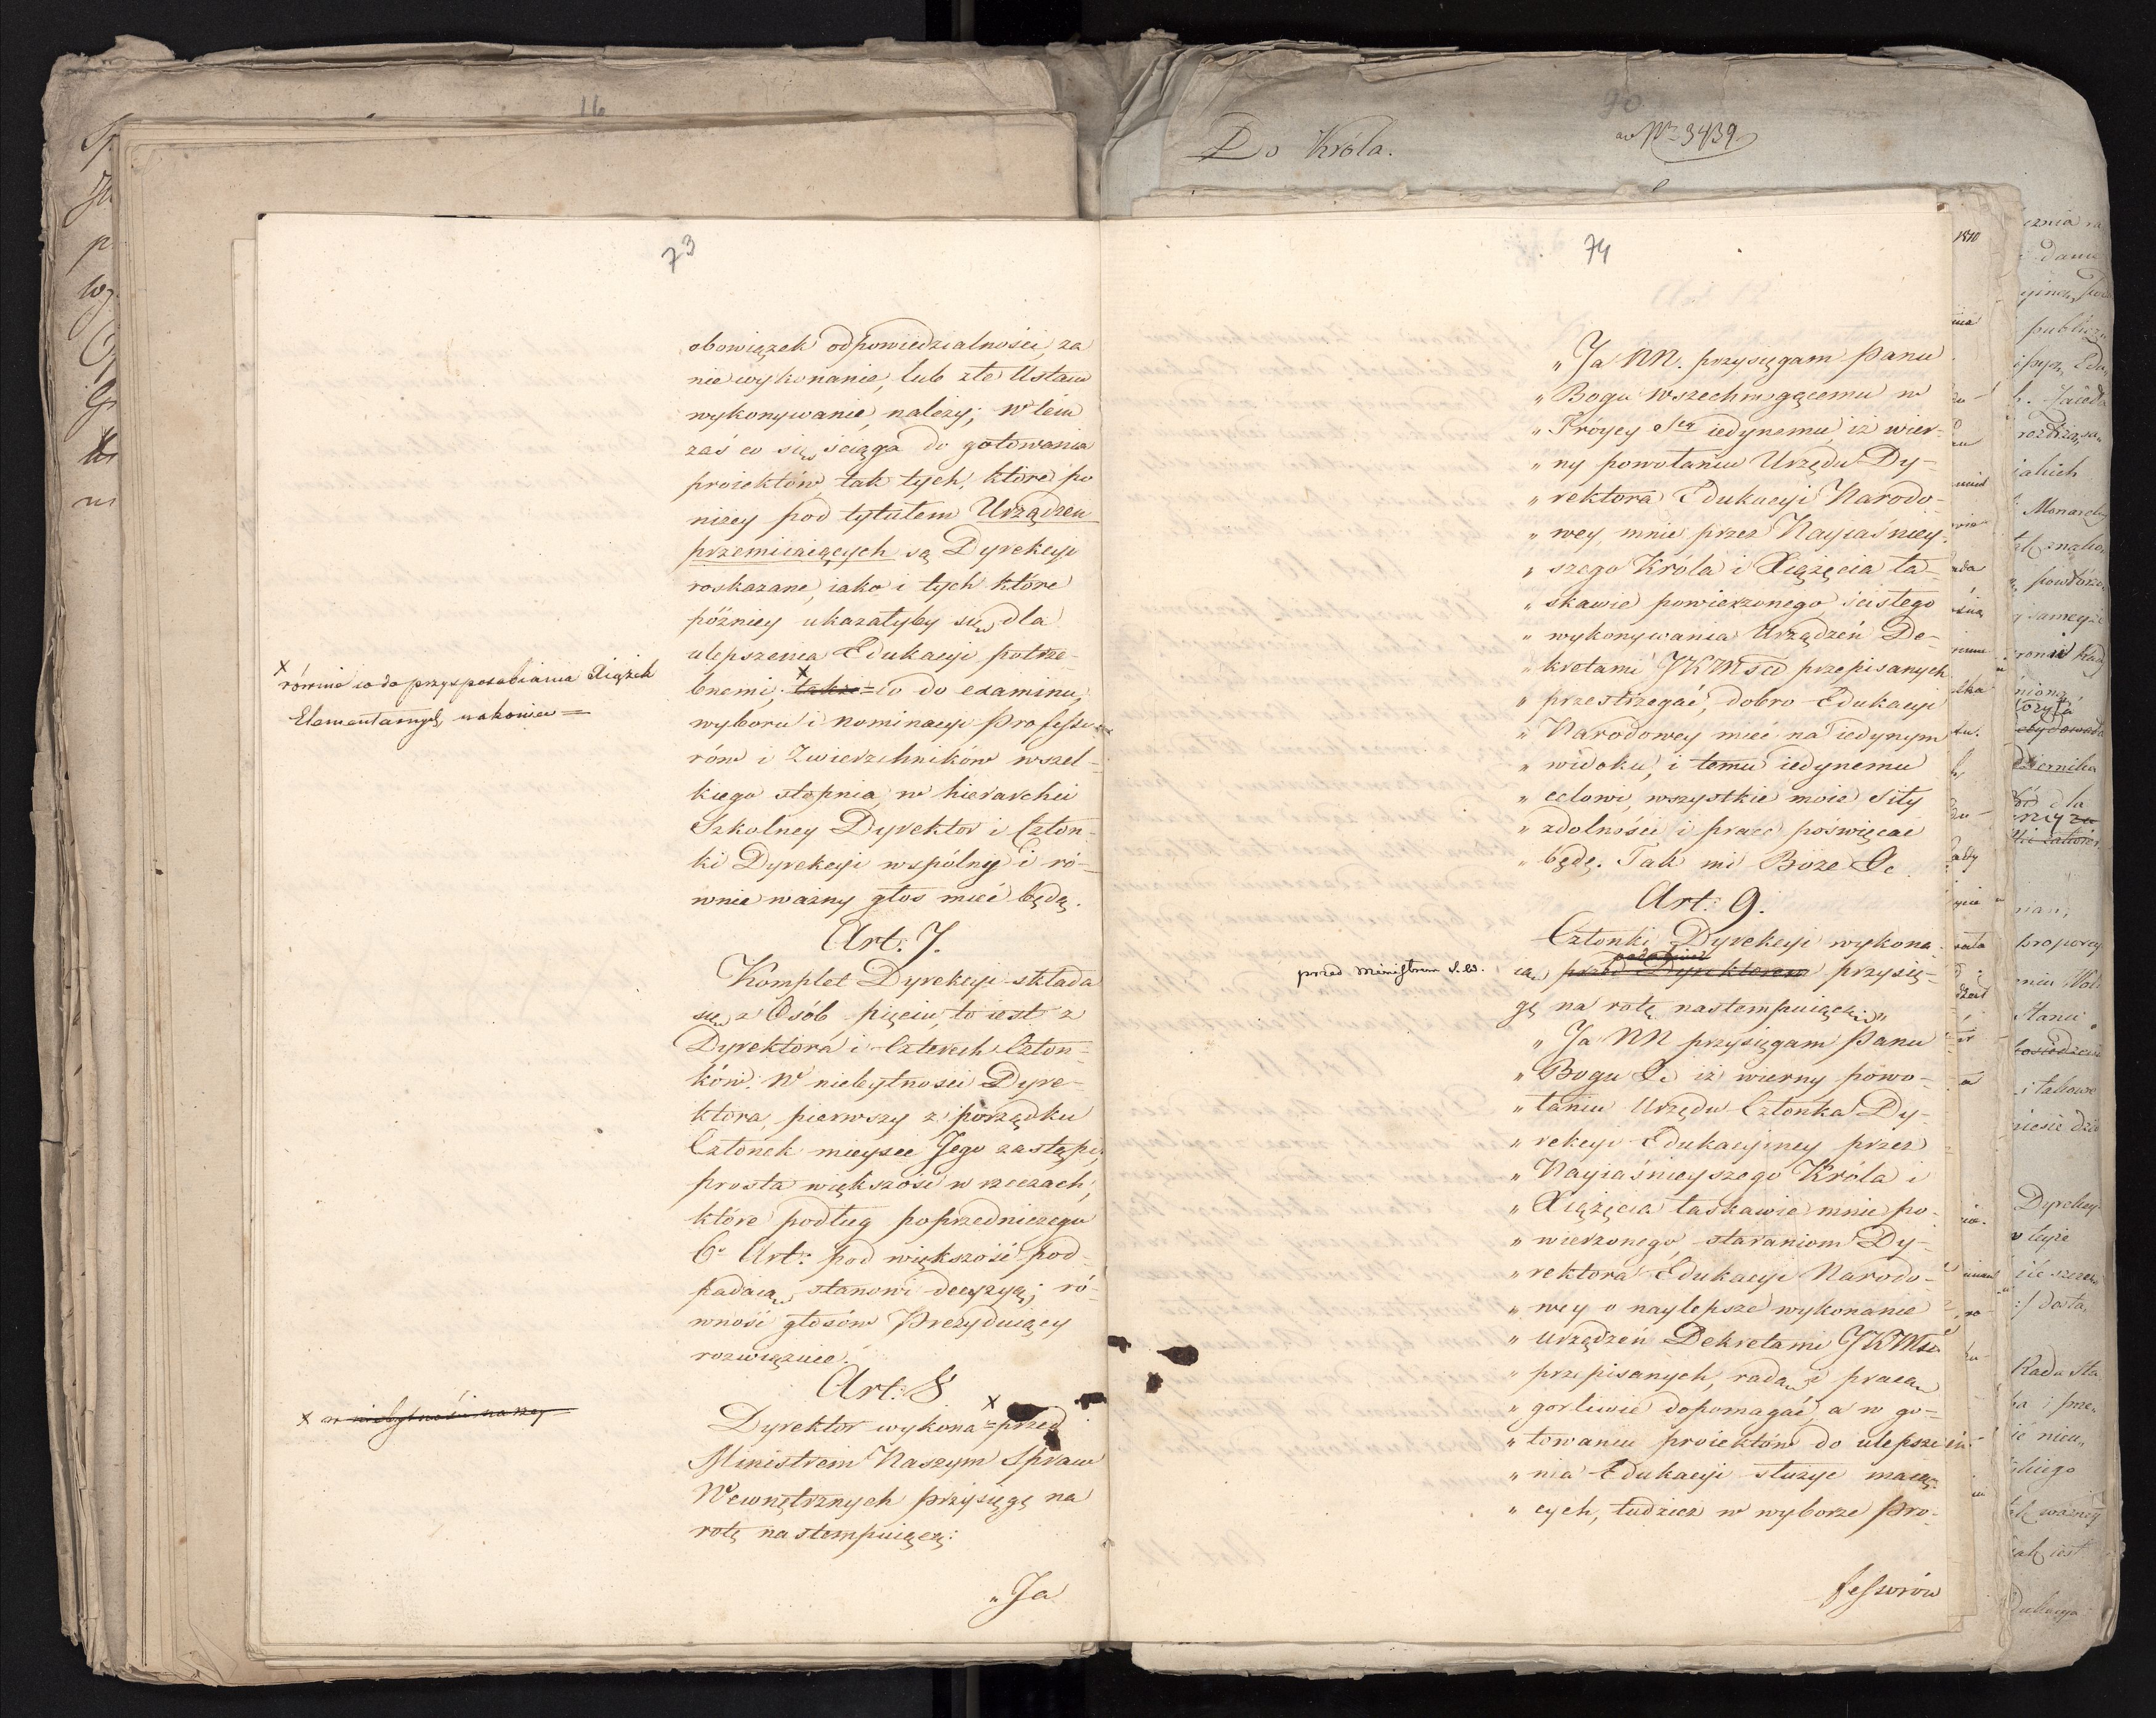 16
73
obowiązek odpowiedzialności, za
nie wykonanie, lub złe Ustaw
wykonywanie, należy; w tém
zaś co się ściąga do gotowania
proiektów, tak tych, które po
niżey pod tytułem Urządzeń
przemiiaiących są Dyrekcyi
roskazane, iako i tych które
późniey ukazałyby się dla
ulepszenia Edukacyi potrze-
x
równie co do przysposabiania Xiążek
Elementarnych, nakoniec =
bnemi, x także = co do examinu,
wyboru i nominacyi Professo-
rów i Zwierzchników wszel-
kiego stopnia w hierarchii
Szkolney Dyrektor i Człon-
ki Dyrekcyi wspólny i ró-
wnie ważny głos mieć będą.
Art: 7.
Komplet Dyrekcyi składa
się z Osób pięciu, to iest z
Dyrektora i Czterech Człon-
ków. W niebytności Dyre-
ktora, pierwszy z porządku
Członek mieysce Jego zastąpi,
prosta większość w rzeczach,
które podług poprzedniczego
6o Art: pod większość pod-
padaią, stanowi decyzyą; ró-
wność głosów Prezyduiący
rozwiązuie.
Art: 8
x w niebytności naszey =
Dyrektor wykona x = przed
Ministrem Naszym Spraw
Wewnętrznych przysięgę na
rotę nastempuiącą:
„Ja
Do Króla.
90
ad Nro 3439
74
„Ja NN. przysięgam Panu
„Bogu Wszechmogącemu w
„Tróycy Stey iedynemu, iż wier-
„ny powołaniu Urzędu Dy-
„rektora Edukacyi Narodo-
„wey mnie przez Nayiaśniey-
„szego Króla i Xiążęcia ła-
„skawie powierzonego, ścisłego
„wykonywania Urządzeń De-
„kretami JKMści przepisanych
„przestrzegać, dobro Edukacyi
„Narodowey mieć na iedynym
„widoku, i temu iedynemu
„celowi, wszystkie moie siły
„zdolności i prace poświęcać
„będę. Tak mi Boże &c.
Art: 9.
Członki Dyrekcyi wykona-
przed Ministrem S.W.
ią przed Dyrektorem przysię-
gę na rotę nastempuiącą:
„Ja NN przysięgam Panu
„Bogu &c iż wierny powo-
„łaniu Urzędu Członka Dy-
„rekcyi Edukacyiney przez
„Nayiaśnieyszego Króla i
„Xiążęcia łaskawie mnie po-
„wierzonego staraniom Dy-
„rektora Edukacyi Narodo-
„wey o naylepsze wykonanie
„Urządzeń Dekretami JKMści
„przepisanych, radą i pracą
„gorliwie dopomagać, a w go-
„towaniu proiektów do ulepsze-
„nia Edukacyi służyć maią-
„cych, tudzież w wyborze Pro-
fessorów